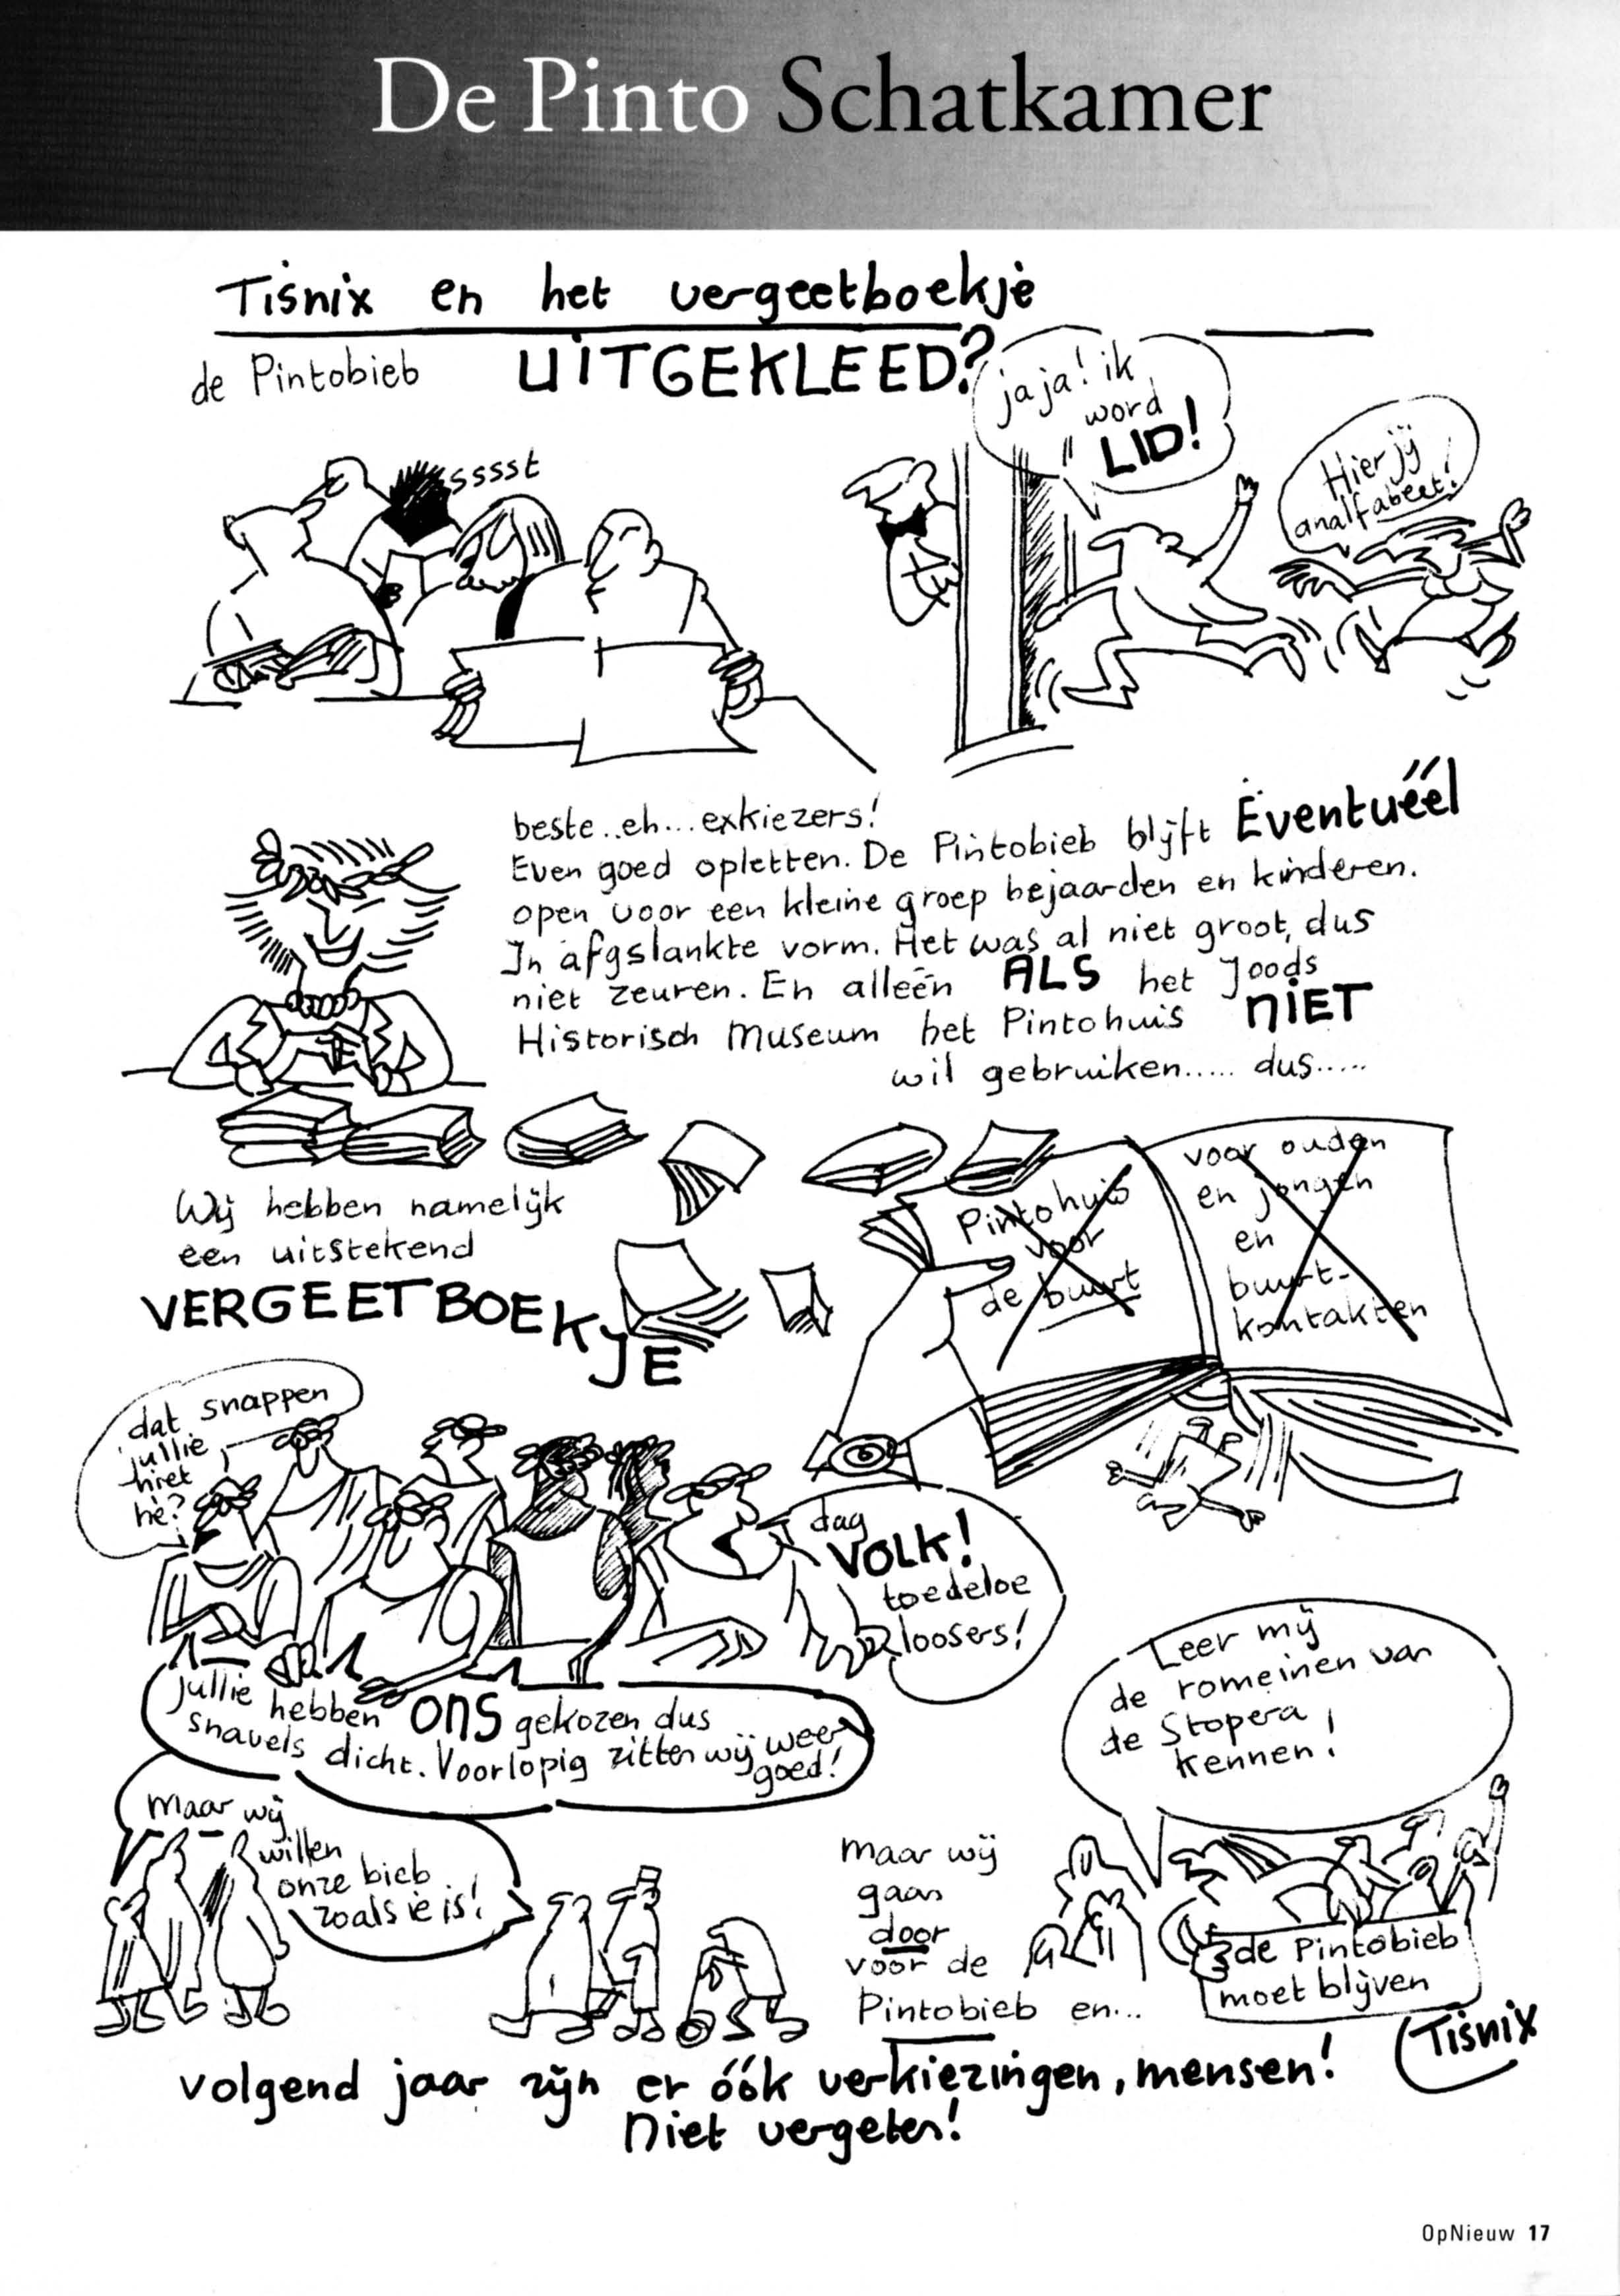 De Pinto Schatkamer
Tisnix en het vergeetboekje
de Pintobieb UITGEKLEED?
jaja! ik
word
LID!
Hier jij
analfabeet!
sssst
beste..eh...exkiezers!
Even goed opletten. De Pintobieb blijft Éventuéél
open voor een kleine groep bejaarden en kinderen.
In afgslankte vorm. Het was al niet groot, dus
niet zeuren. En alleen ALS het Joods
Historisch Museum het Pintohuis NIET
wil gebruiken..... dus.....
Wij hebben namelijk
een uitstekend
VERGEETBOEKJE
Pintohuis
voor
de buurt
voor ouden
en jongen
en
buurt-
kontakten
dat snappen
jullie
niet
hè?
dag
VOLK!
toedeloe
loosers!
jullie hebben ONS gekozen dus
snavels dicht. Voorlopig zitten wij weer
goed!
Leer mij
de romeinen van
de Stopera
kennen!
maar wij
willen
onze bieb
zoals ie is!
maar wij
gaan
door
voor de
Pintobieb en...
de Pintobieb
moet blijven
Tisnix
volgend jaar zijn er óók verkiezingen, mensen!
Niet vergeten!
OpNieuw 17